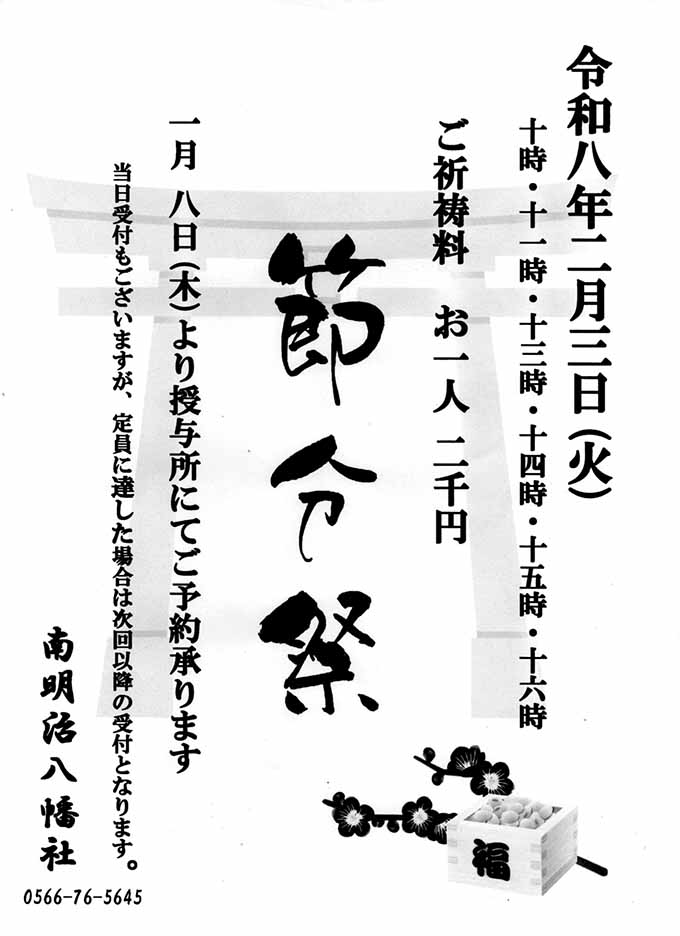 令和八年二月三日(火)
十時・十一時・十三時・十四時・十五時・十六時
ご祈祷料　お一人 二千円
節分祭
一月 八日(木)より授与所にてご予約承ります
当日受付もございますが、定員に達した場合は次回以降の受付となります。
南明治八幡社
0566-76-5645
福